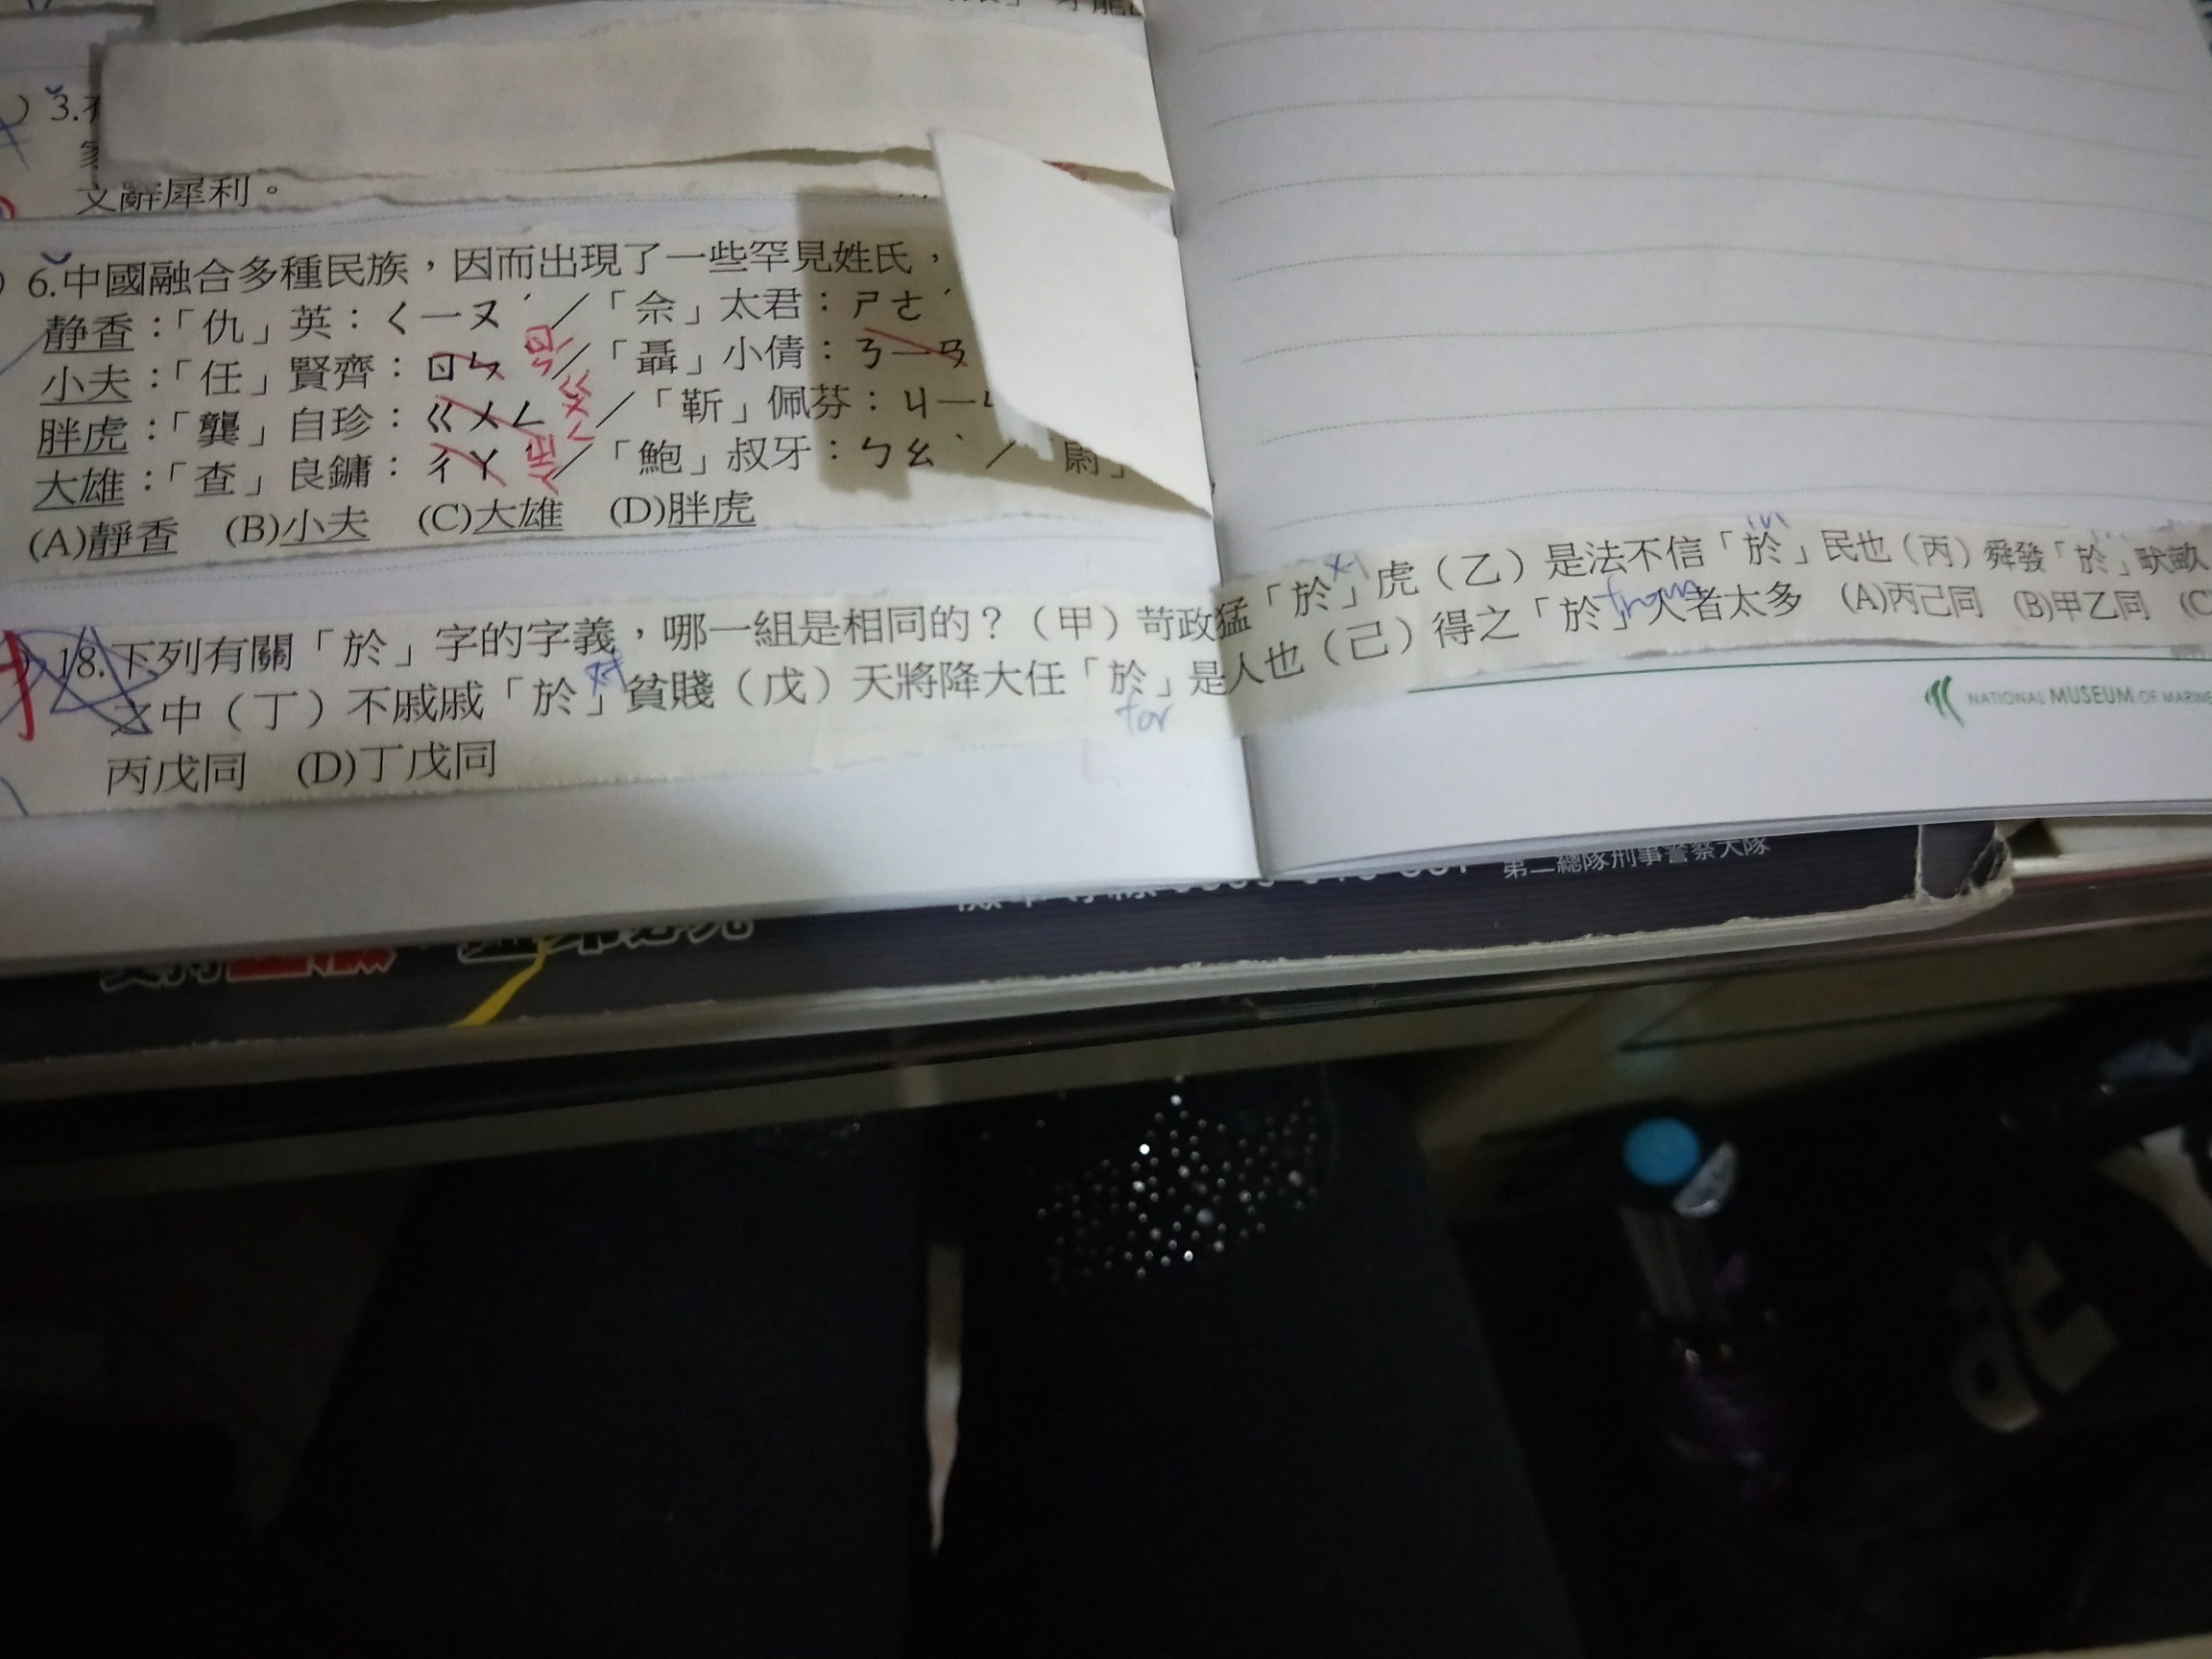 3.
文辭犀利。
6.中國融合多種民族，因而出現了一些罕見姓氏，
靜香：「仇」英：ㄑㄧㄡˊ／「佘」太君：ㄕㄜˊ
小夫：「任」賢齊：ㄖㄣ ㄖㄣˊ／「聶」小倩：ㄋㄧㄢ
胖虎：「龔」自珍：ㄍㄨㄥ ㄍㄨㄥ／「靳」佩芬：ㄐㄧ
大雄：「查」良鏞：ㄔㄚ ㄓㄚ／「鮑」叔牙：ㄅㄠˋ／「尉」
(A)靜香 (B)小夫 (C)大雄 (D)胖虎
18.下列有關「於」字的字義，哪一組是相同的？（甲）苛政猛「於」虎（乙）是法不信「於」民也（丙）舜發「於」畎畝
之中（丁）不戚戚「於」貧賤（戊）天將降大任「於」是人也（己）得之「於」人者太多 (A)丙己同 (B)甲乙同 (C
丙戊同 (D)丁戊同
in
比
from
對
for
NATIONAL MUSEUM OF MARINE
第二總隊刑事警察大隊